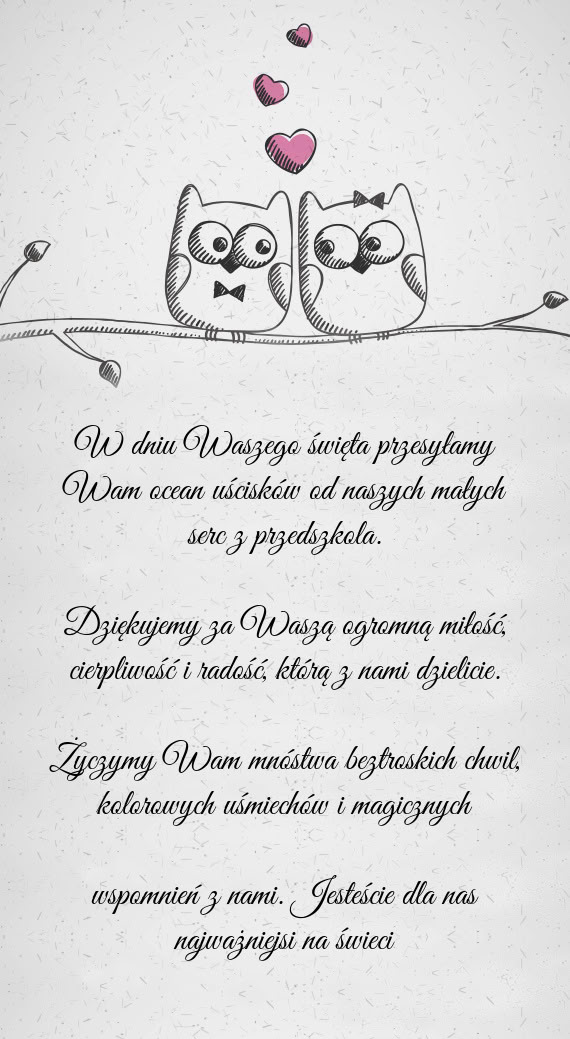 W dniu Waszego święta przesyłamy
Wam ocean uścisków od naszych małych
serc z przedszkola.
Dziękujemy za Waszą ogromną miłość,
cierpliwość i radość, którą z nami dzielicie.
Życzymy Wam mnóstwa beztroskich chwil,
kolorowych uśmiechów i magicznych
wspomnień z nami. Jesteście dla nas
najważniejsi na świeci